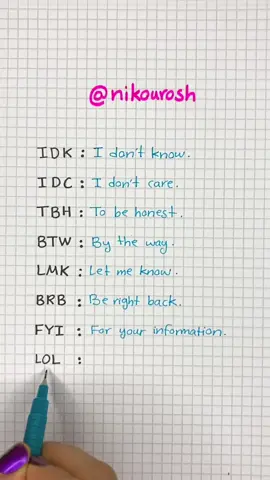 @nikourosh
IDK : I don't know.
IDC : I don't care.
TBH : To be honest.
BTW : By the way.
LMK : Let me know.
BRB : Be right back.
FYI : For your information.
LOL :